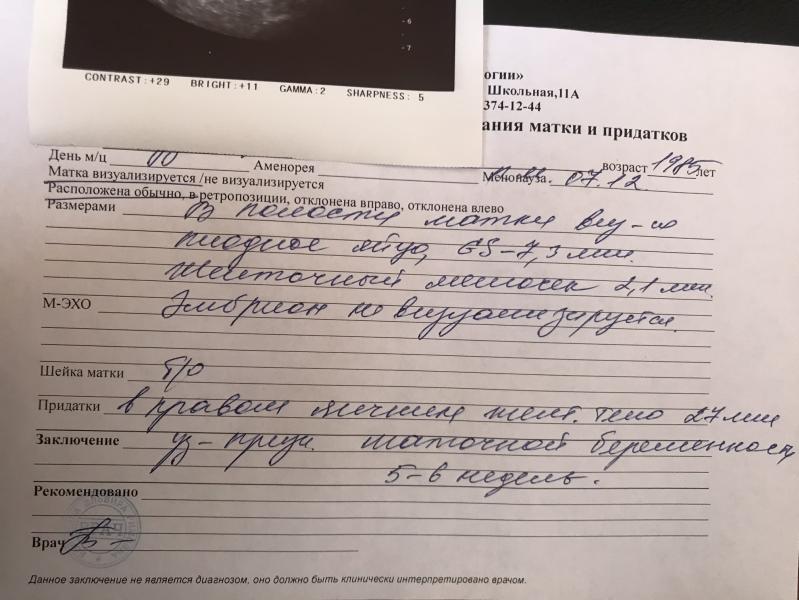 CONTRAST:+29 BRIGHT:+11 GAMMA:2 SHARPNESS: 5
-6
-7
огии»
Школьная,11А
374-12-44
ания матки и придатков
День м/ц Аменорея Менопауза 07.12. возраст 1985 лет
Матка визуализируется /не визуализируется
Расположена обычно, в ретропозиции, отклонена вправо, отклонена влево
Размерами В полости матки виз-ся
плодное яйцо, GS-7,3 мм.
Желточный мешочек 2,1 мм.
М-ЭХО Эмбрион не визуализируется.
Шейка матки б/о
Придатки в правом яичнике желт. тело 27 мм
Заключение Уз-призн. маточной беременности
5-6 недель.
Рекомендовано
Врач
Данное заключение не является диагнозом, оно должно быть клинически интерпретировано врачом.